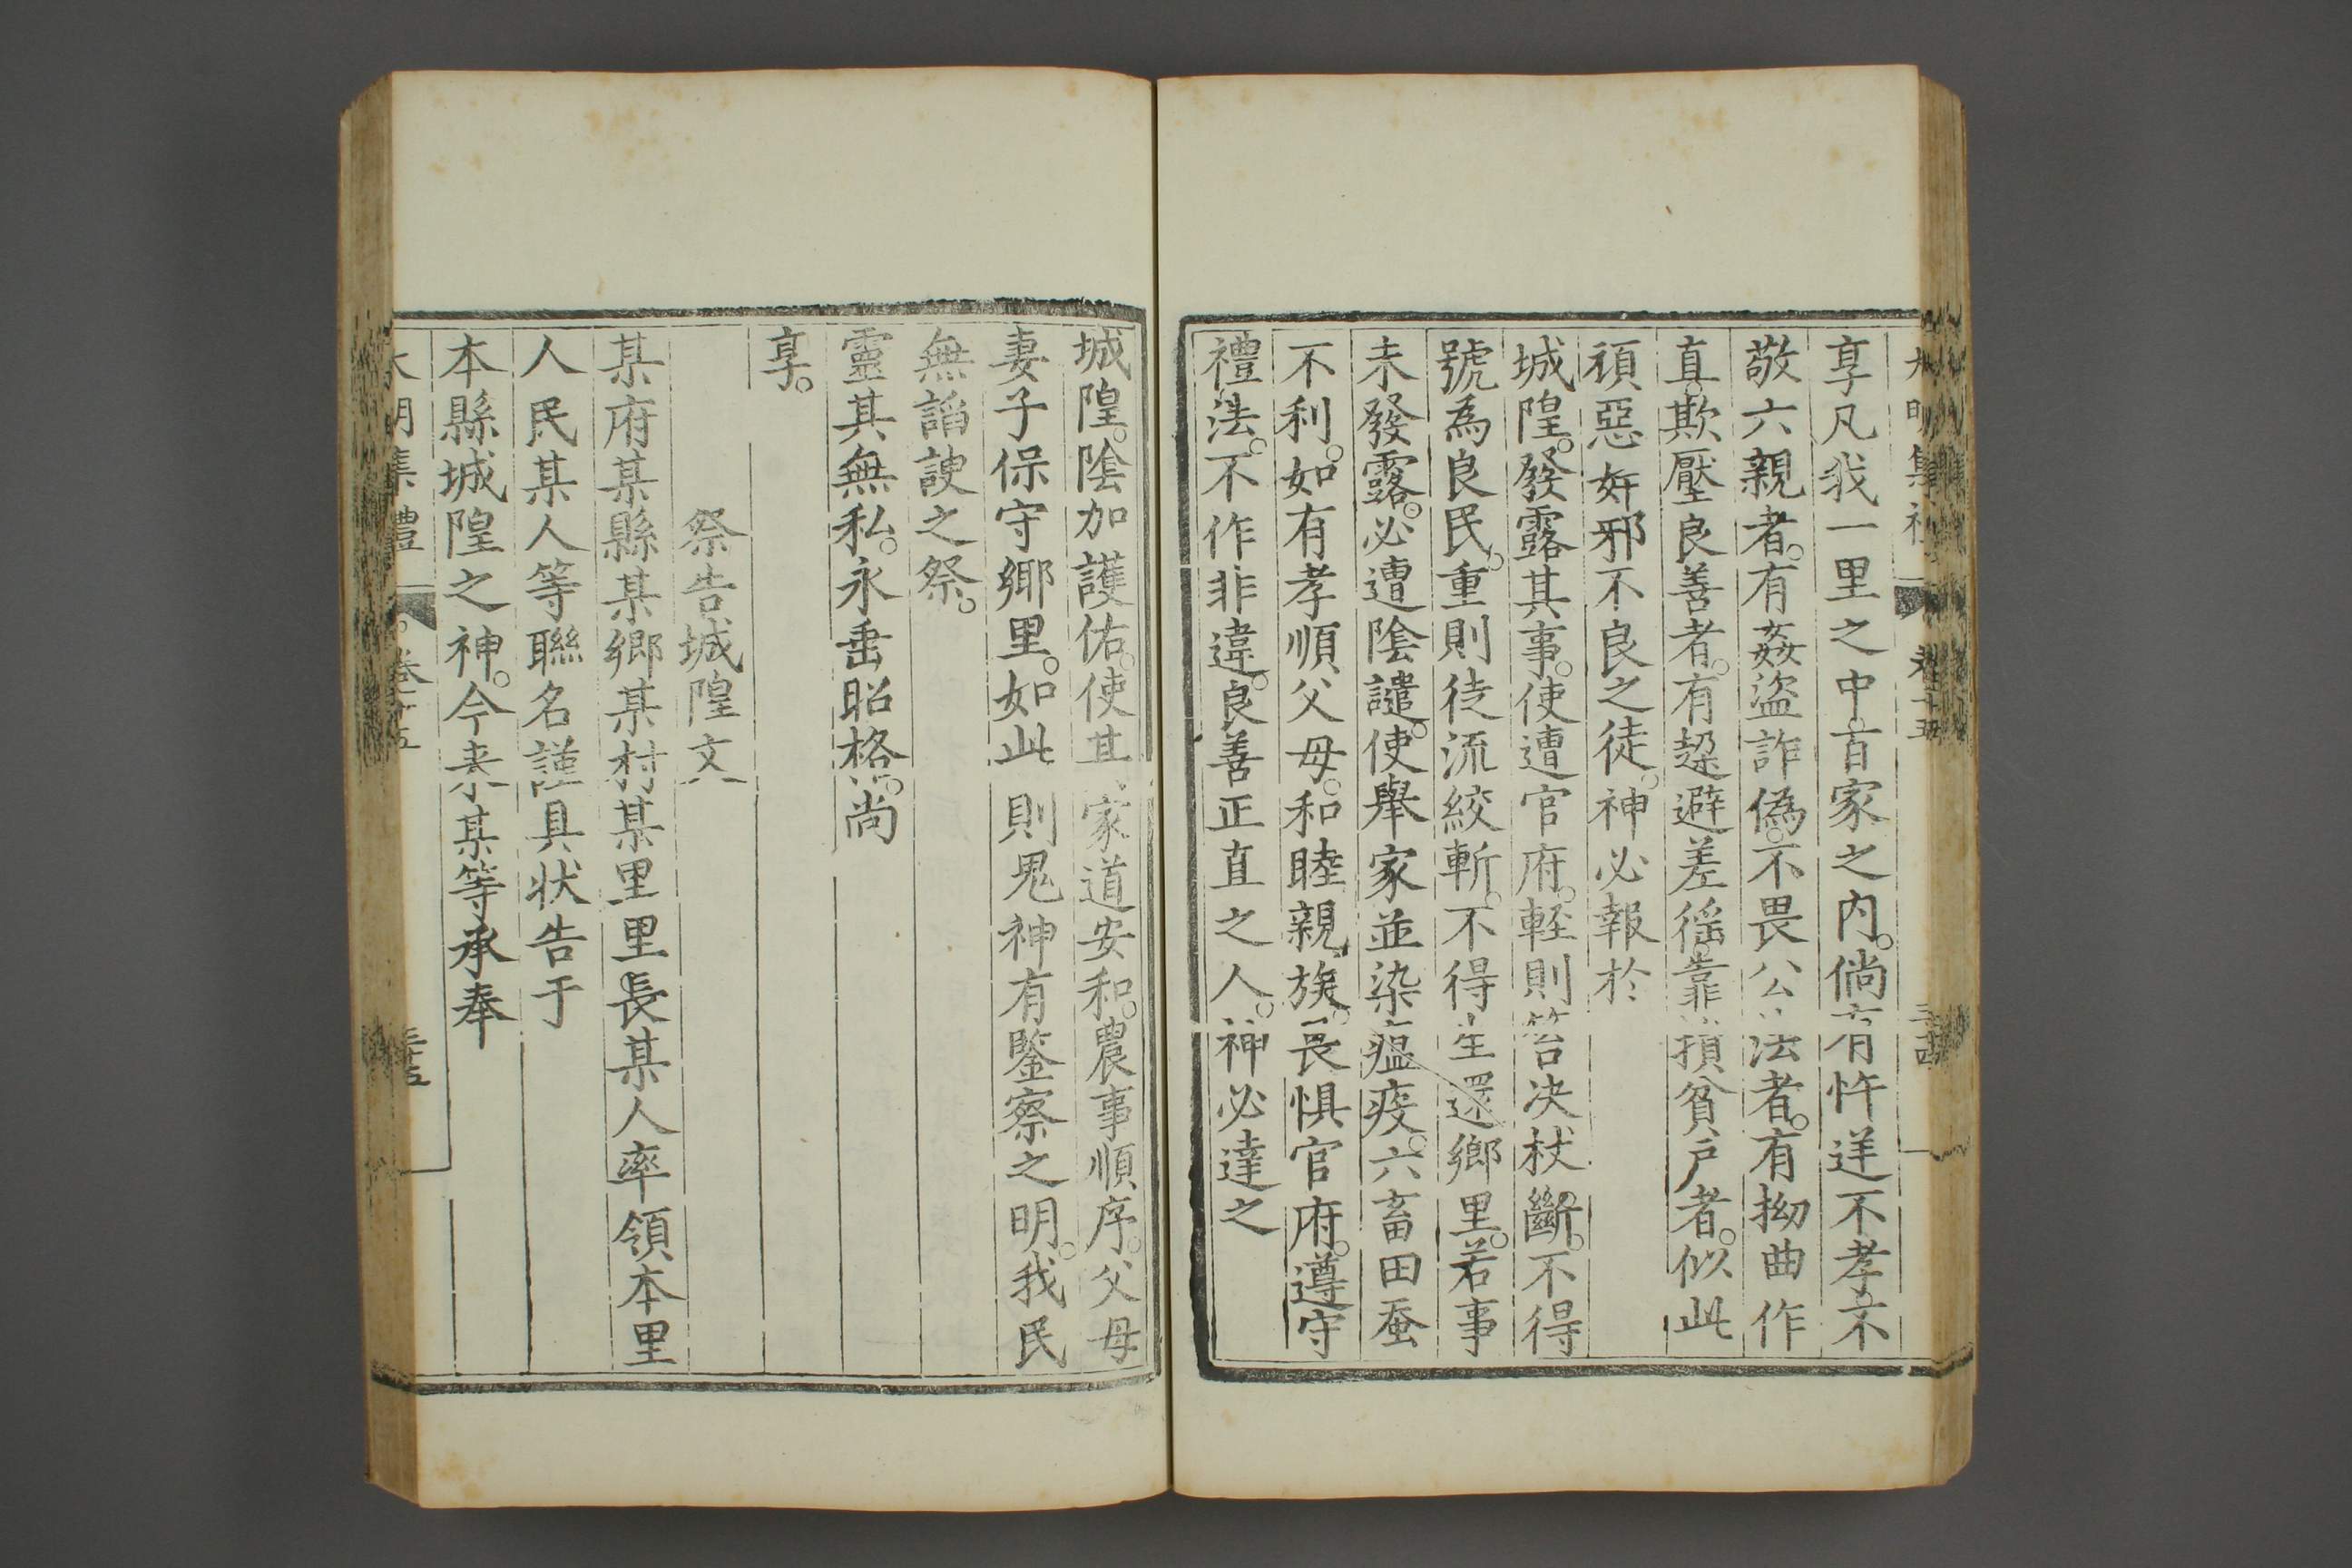 享凡我一里之中。百家之内。倘有忤逆不孝。不
敬六親者。有姦盜詐偽。不畏公法者。有拗曲作
直。欺壓良善者。有趓避差徭。靠損貧户者。似此
頑惡奸邪不良之徒。神必報於
城隍。發露其事。使遭官府。輕則笞决杖斷。不得
號為良民。重則徒流絞斬。不得生還鄉里。若事
未發露。必遭陰譴。使舉家並染瘟疫。六畜田蚕
不利。如有孝順父母。和睦親族。畏惧官府。遵守
禮法。不作非違。良善正直之人。神必達之
城隍。陰加護佑。使其家道安和。農事順序。父母
妻子保守鄉里。如此則鬼神有鑒察之明。我民
無諂諛之祭。
靈其無私。永垂昭格。尚
享。
祭告城隍文
某府某縣某鄉某村某里里長某人率領本里
人民某人等聯名謹具状告于
本縣城隍之神。今来某等承奉
大明集禮 卷十五 三十五